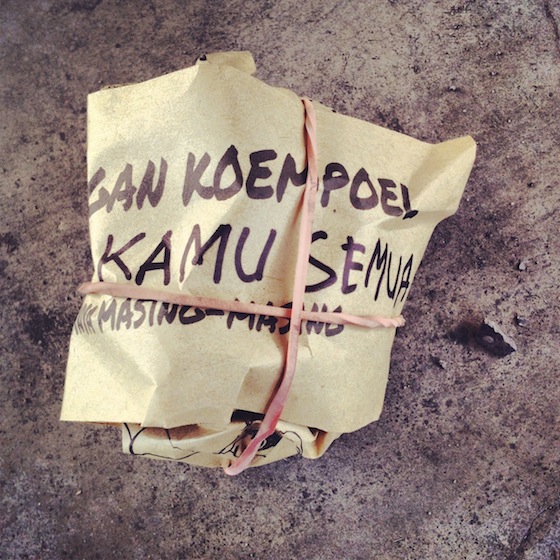 GAN KOEMPOEL
KAMU SEMUA
MASING-MASING